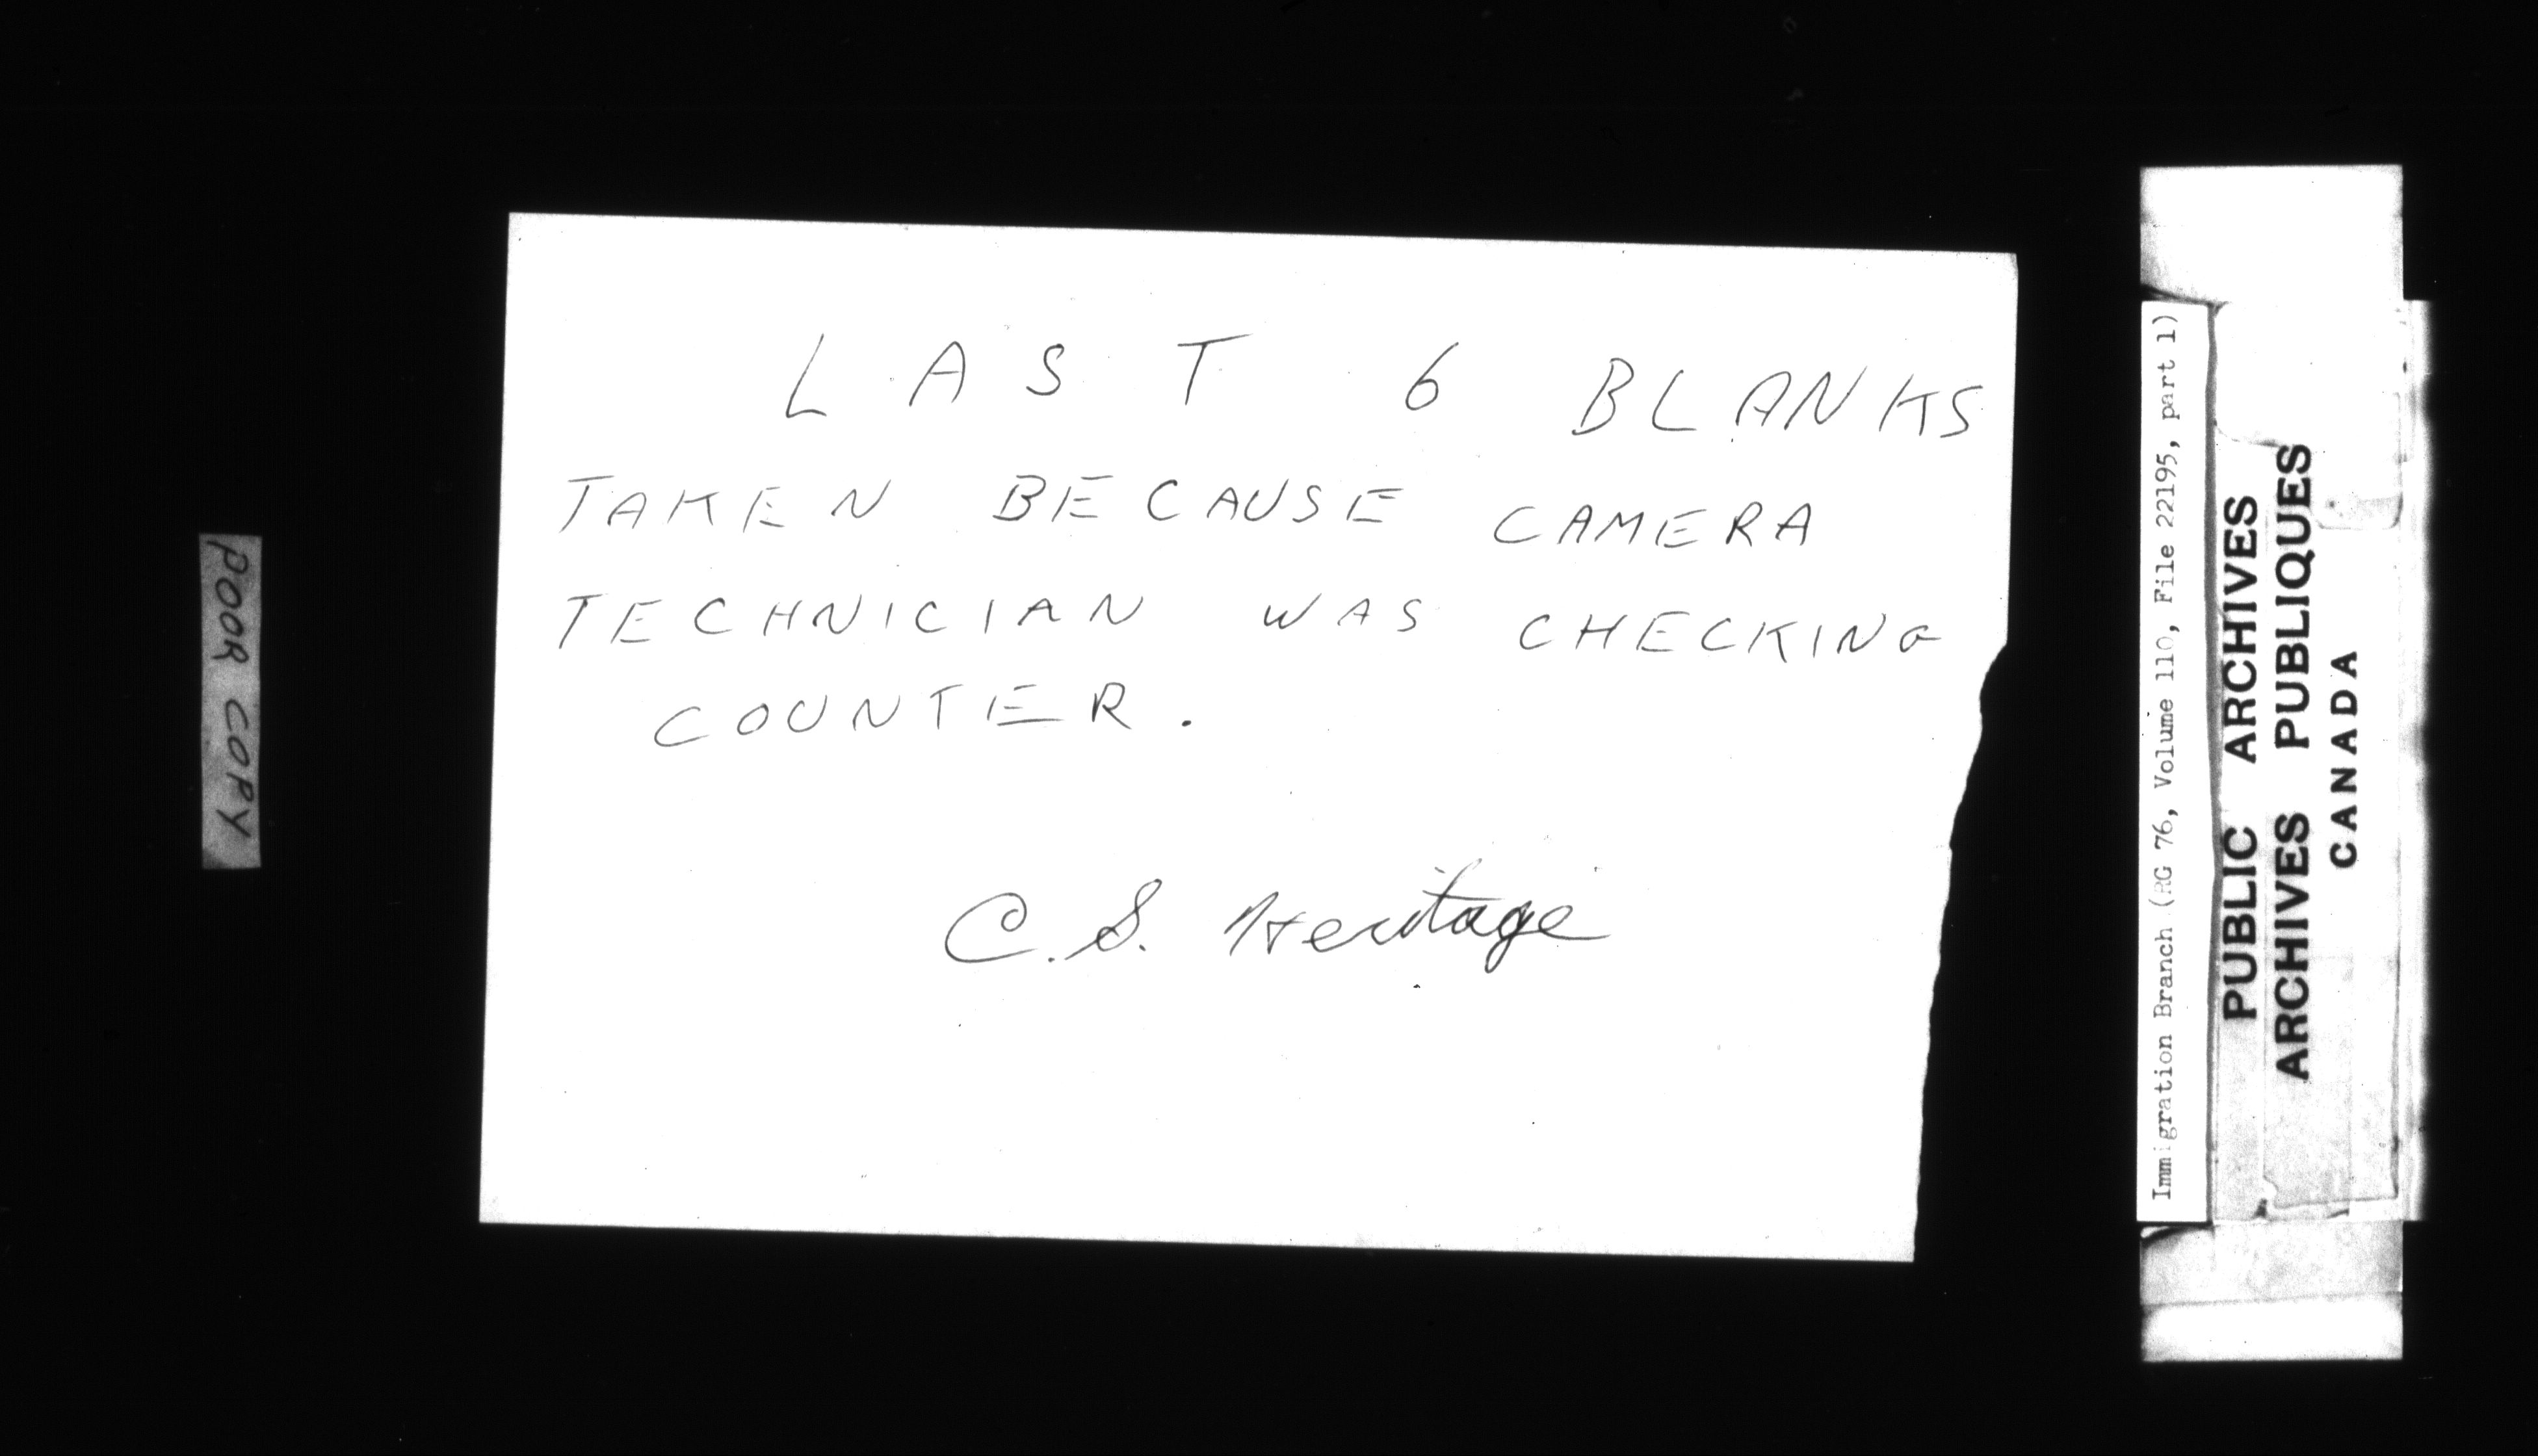 POOR COPY
LAST 6 BLANKS
TAKEN BECAUSE CAMERA
TECHNICIAN WAS CHECKING
COUNTER.
C. S. Heritage
Immigration Branch (RG 76, Volume 110, File 22195, part 1)
PUBLIC ARCHIVES
ARCHIVES PUBLIQUES
CANADA